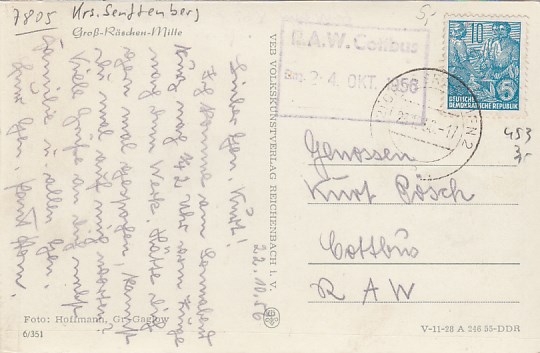 7805 Krs. Senftenberg
Groß-Räschen-Mitte
22.10.56
Lieber Gen. Kurt!
Ich komme am Sonnabend
kurz nach 1/2 Uhr vom Zuge
nach dem Werk. Hätte Dich
gern mal gesprochen, kannst
Du mal auf mich warten?
Viele Grüße an Dich nebst
Familie u. allen Gen.
Dein Gen.
Foto: Hoffmann, Gr.-Gaglow
6/351
VEB VOLKSKUNSTVERLAG REICHENBACH I. V.
R.A.W. Cottbus
Eing. 24. OKT. 1956
5,-
10
5
DEUTSCHE
DEMOKRATISCHE REPUBLIK
453
3,-
Genossen
Kurt Pösch
Cottbus
R A W
V-11-28 A 246 55-DDR